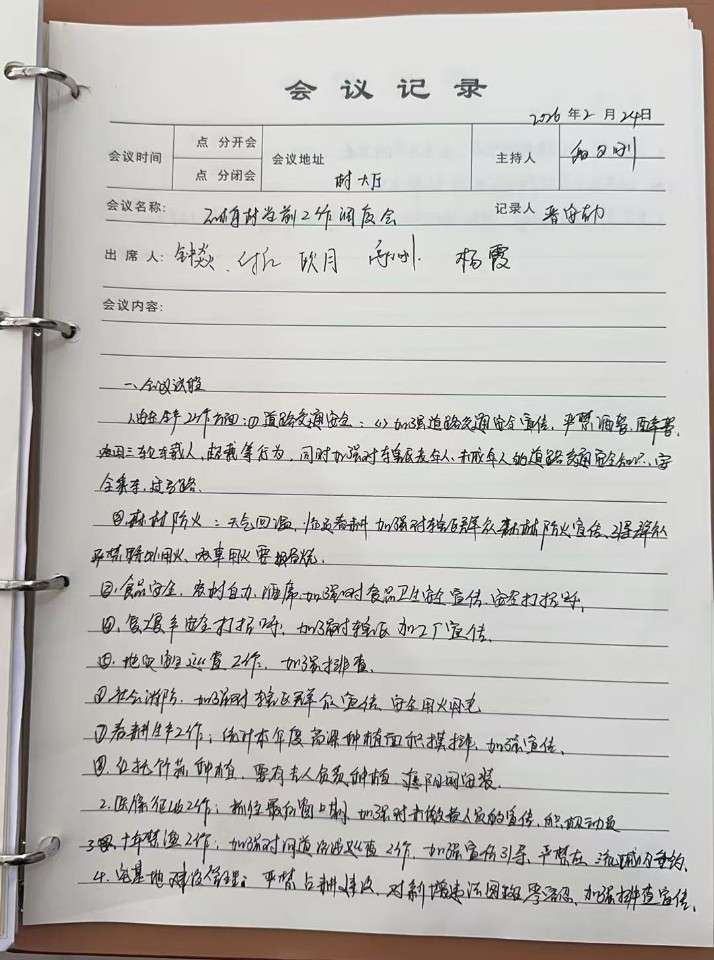 会议记录
2026年2月24日
会议时间 点 分开会 会议地址 村大厅 主持人
点 分闭会
会议名称: 村当前工作调度会 记录人
出席人: 钟焱、 杨霞
会议内容:
一、会议议题
1.安全生产工作方面:①道路交通安全:(1)加强道路交通安全宣传,严禁酒驾,醉驾,
三轮车载人,超载等行为,同时加强对辖区老年人、未成年人的道路交通安全知识,
全乘车,过马路。
②森林防火:天气回温,加强对辖区群众森林防火宣传,引导群众
严禁野外用火、农事用火要报备。
③食品安全,农村自办酒席,加强对食品卫生安全宣传,安全打招呼。
④、复工复产安全打招呼,加强对辖区加工厂宣传。
⑤、地灾巡查工作:加强排查。
⑥社会消防,加强对辖区群众宣传、安全用火用电
⑦春耕生产工作:统计本年度高粱种植面积摸排,加强宣传、
⑧、红托竹荪种植,要有专人负责种植,遮阳网安装。
2.医保征收工作:抓住最后窗口期,加强对未缴费人员的宣传,积极动员
3.十年禁渔工作,加强对河道沿线巡查工作,加强宣传引导,严禁在流域内垂钓、
4.宅基地建设管理:严禁占耕建设,对新增违法图斑零容忍,加强排查宣传。